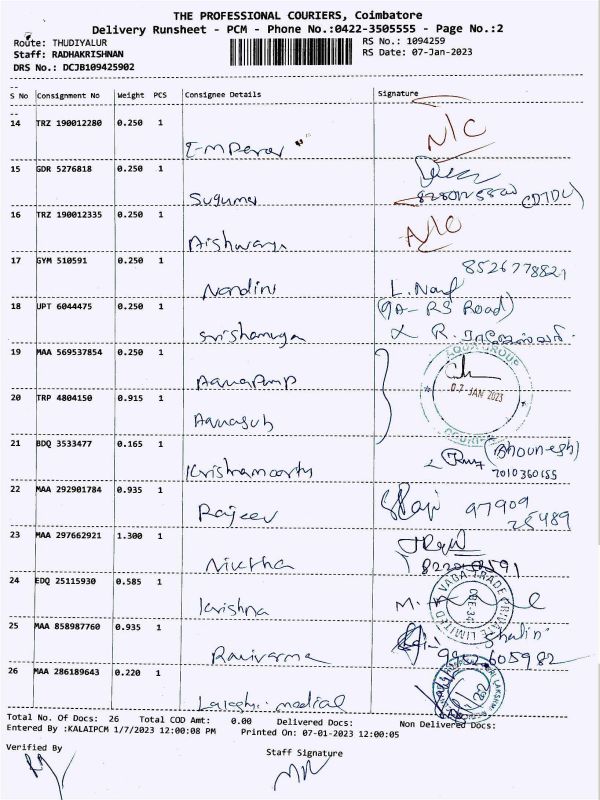 THE PROFESSIONAL COURIERS, Coimbatore
Delivery Runsheet - PCM - Phone No.:0422-3505555 - Page No.:2
Route: THUDIYALUR
Staff: RADHAKRISHNAN
DRS No.: DCJB109425902
RS No.: 1094259
RS Date: 07-Jan-2023
S No Consignment No Weight PCS Consignee Details Signature
14 TRZ 190012280 0.250 1 N/C
15 GDR 5276818 0.250 1 Sugumar (DTDC)
16 TRZ 190012335 0.250 1 Aishwarya N/C
17 GYM 510591 0.250 1 Nandini L. Nanf 8526778821
18 UPT 6044475 0.250 1 (9A- RS Road)
& R.
19 MAA 569537854 0.250 1 AquaPump AQUA GROUP
07 JAN 2023
20 TRP 4804150 0.915 1 Aquasub
21 BDQ 3533477 0.165 1 Krishnamoorthy (Bhounesh)
7010360155
22 MAA 292901784 0.935 1 Rajeev 97909
25489
23 MAA 297662921 1.300 1 Nivetha
24 EDQ 25115930 0.585 1 Krishna PRIVATE LIMITED
25 MAA 858987760 0.935 1 Ravivarma Shalin
26 MAA 286189643 0.220 1 medical
Total No. Of Docs: 26 Total COD Amt: 0.00 Delivered Docs: Non Delivered Docs:
Entered By :KALAIPCM 1/7/2023 12:00:08 PM Printed On: 07-01-2023 12:00:05
Verified By Staff Signature